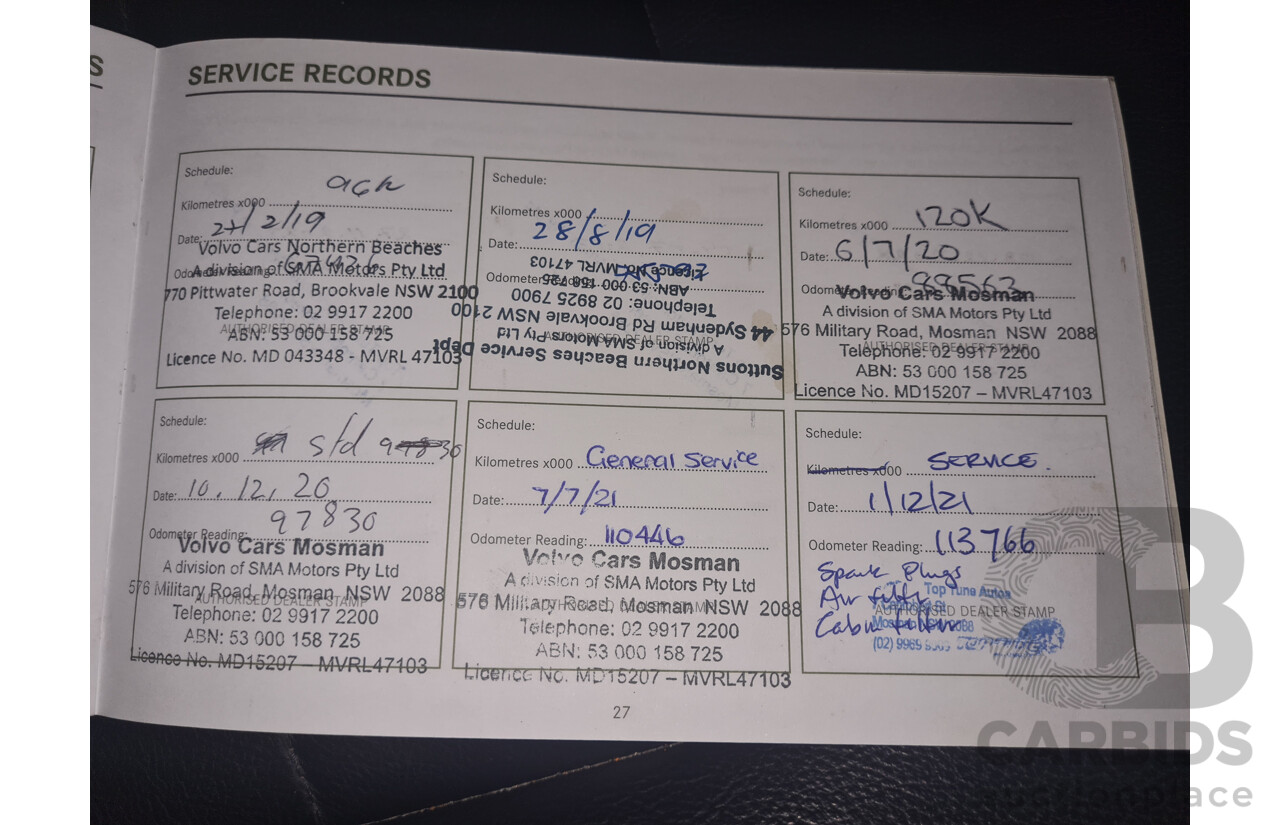 S
SERVICE RECORDS
Schedule:
Kilometres x000 96k
Date: /2/19
Odometer Reading:
Volvo Cars Northern Beaches
A division of SMA Motors Pty Ltd
770 Pittwater Road, Brookvale NSW 2100
Telephone: 02 9917 2200
AUTHORISED DEALER STAMP
ABN: 53 000 158 725
Licence No. MD 043348 - MVRL 47103
Schedule:
Kilometres x000
Date: 28/8/19
Odometer Reading:
AUTHORISED DEALER STAMP
Suttons Northern Beaches Service Dept
A division of SMA Motors Pty Ltd
44 Sydenham Rd Brookvale NSW 2100
Telephone: 02 8925 7900
ABN: 53 000 158 725
Licence No. MVRL 47103
Schedule:
Kilometres x000 120K
Date: 6/7/20
Odometer Reading: 88563
Volvo Cars Mosman
A division of SMA Motors Pty Ltd
576 Military Road, Mosman NSW 2088
AUTHORISED DEALER STAMP
Telephone: 02 9917 2200
ABN: 53 000 158 725
Licence No. MD15207 – MVRL47103
Schedule:
Kilometres x000 std
Date: 10.12.20
Odometer Reading: 97830
Volvo Cars Mosman
A division of SMA Motors Pty Ltd
576 Military Road, Mosman NSW 2088
AUTHORISED DEALER STAMP
Telephone: 02 9917 2200
ABN: 53 000 158 725
Licence No. MD15207 – MVRL47103
Schedule:
Kilometres x000 General Service
Date: 7/7/21
Odometer Reading: 110446
Volvo Cars Mosman
A division of SMA Motors Pty Ltd
576 Military Road, Mosman NSW 2088
AUTHORISED DEALER STAMP
Telephone: 02 9917 2200
ABN: 53 000 158 725
Licence No. MD15207 – MVRL47103
Schedule:
Kilometres x000 SERVICE.
Date: 1/12/21
Odometer Reading: 113766
Spark Plugs
Air filter
Cabin filter
Top Tune Autos
AUTHORISED DEALER STAMP
(02) 9969
27
CB
CARBIDS
auctionplace